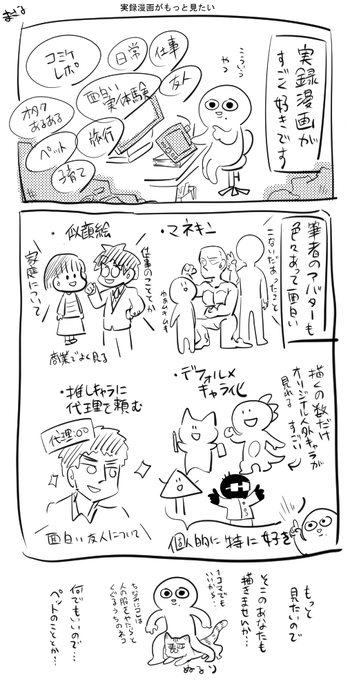 実録漫画がもっと見たい
実録漫画が
すごく好きです
こういう
やつ
仕事
日常
コミケ
レポ
友人
面白い
実体験
オタク
あるある
旅行
ペット
子育て
筆者のアバターも
色々あって面白い
・マネキン
こないだあったこと
・似顔絵
仕事のこととか
家庭について
商業でよく見る
・デフォルメ
キャラ化
描く人の数だけ
オリジナル人外キャラが
見れる
すごい
個人的に特に好き
・推しキャラに
代理で頼む
代理:○○
面白い友人について
もっと
見たいので
そこのあなたも
描きませんか…
1コマでも
いいから…
ちなみにこは
人の服をやたらと
くぐるうちのネコ
ぬるり
何でもいいので…
ペットのこととか…